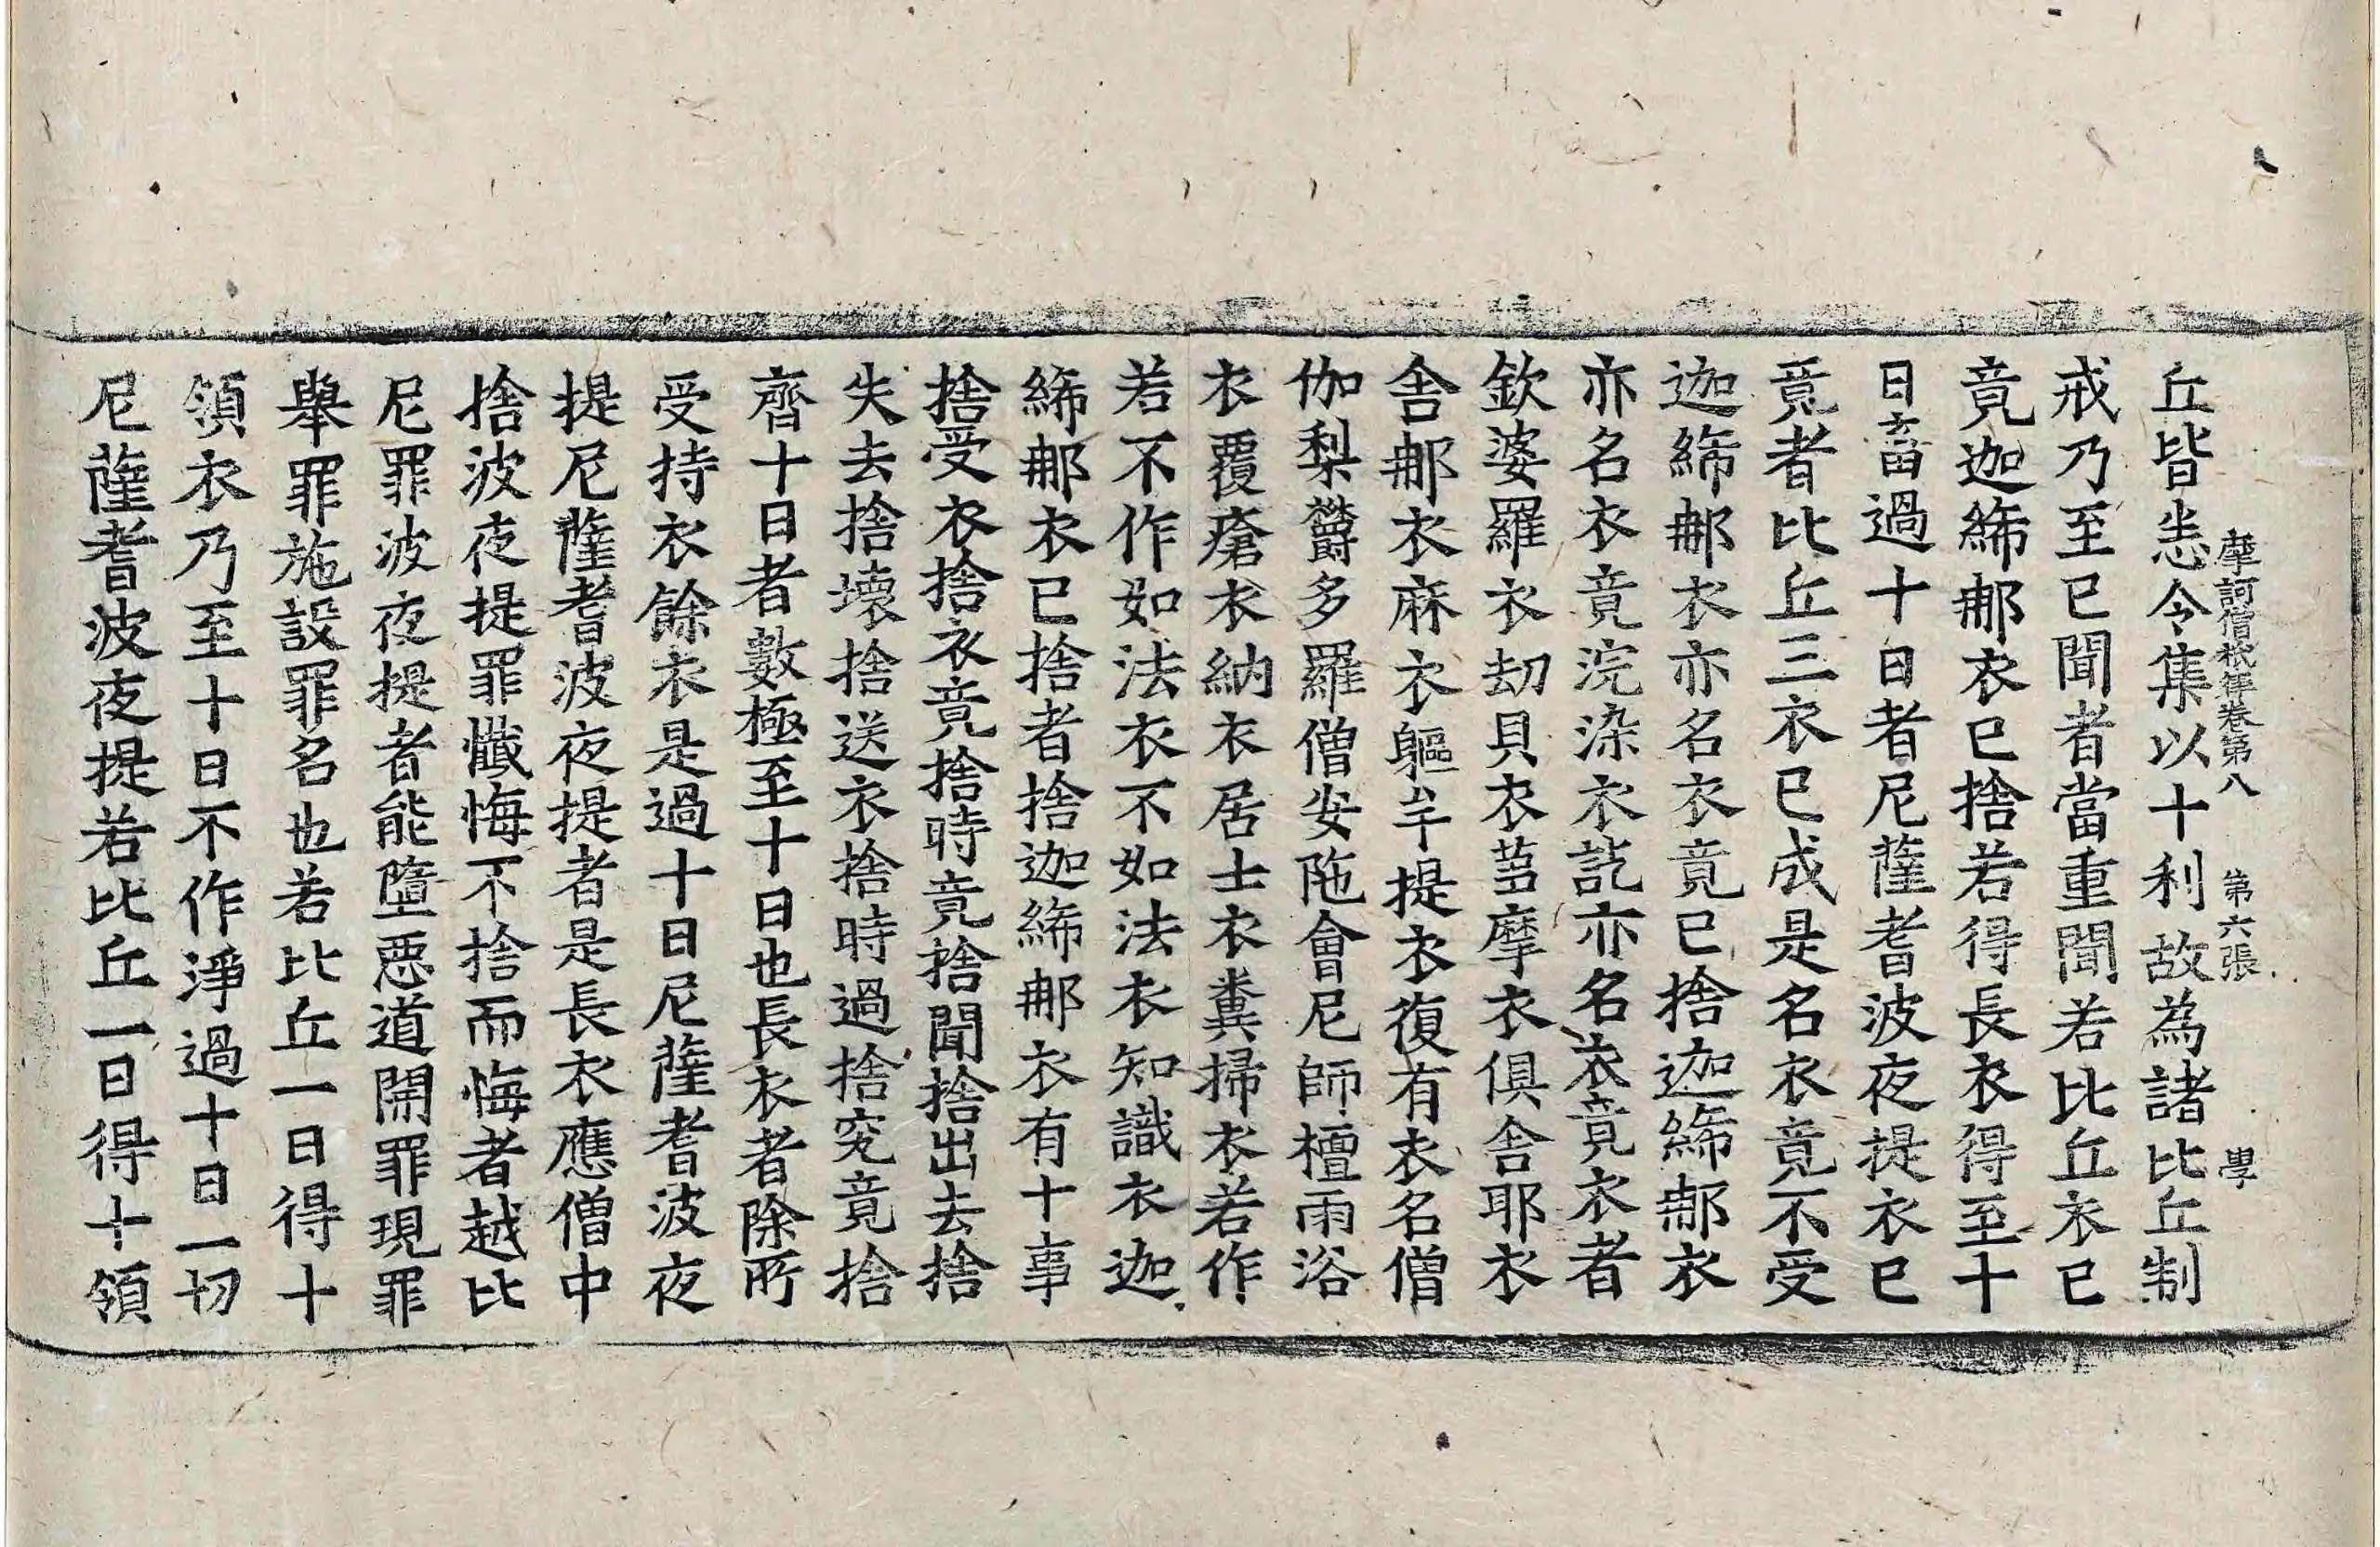 摩訶僧祇律卷第八　第六張　學
丘皆悉令集以十利故為諸比丘制
戒乃至已聞者當重聞若比丘衣已
竟迦絺那衣已捨若得長衣得至十
日畜過十日者尼薩耆波夜提衣已
竟者比丘三衣已成是名衣竟不受
迦絺那衣亦名衣竟已捨迦絺那衣
亦名衣竟浣染衣訖亦名衣竟衣者
欽婆羅衣劫貝衣芻摩衣俱舍耶衣
舍那衣麻衣軀牟提衣復有衣名僧
伽梨欝多羅僧安陁會尼師檀雨浴
衣覆瘡衣納衣居士衣糞掃衣若作
若不作如法衣不如法衣知識衣迦
絺那衣已捨者捨迦絺那衣有十事
捨受衣捨衣竟捨時竟捨聞捨出去捨
失去捨壞捨送衣捨時過捨究竟捨
齊十日者數極至十日也長衣者除所
受持衣餘衣是過十日尼薩耆波夜
提尼薩耆波夜提者是長衣應僧中
捨波夜提罪懺悔不捨而悔者越比
尼罪波夜提者能墮惡道開罪現罪
舉罪施設罪名也若比丘一日得十
領衣乃至十日不作淨過十日一切
尼薩耆波夜提若比丘一日得十領